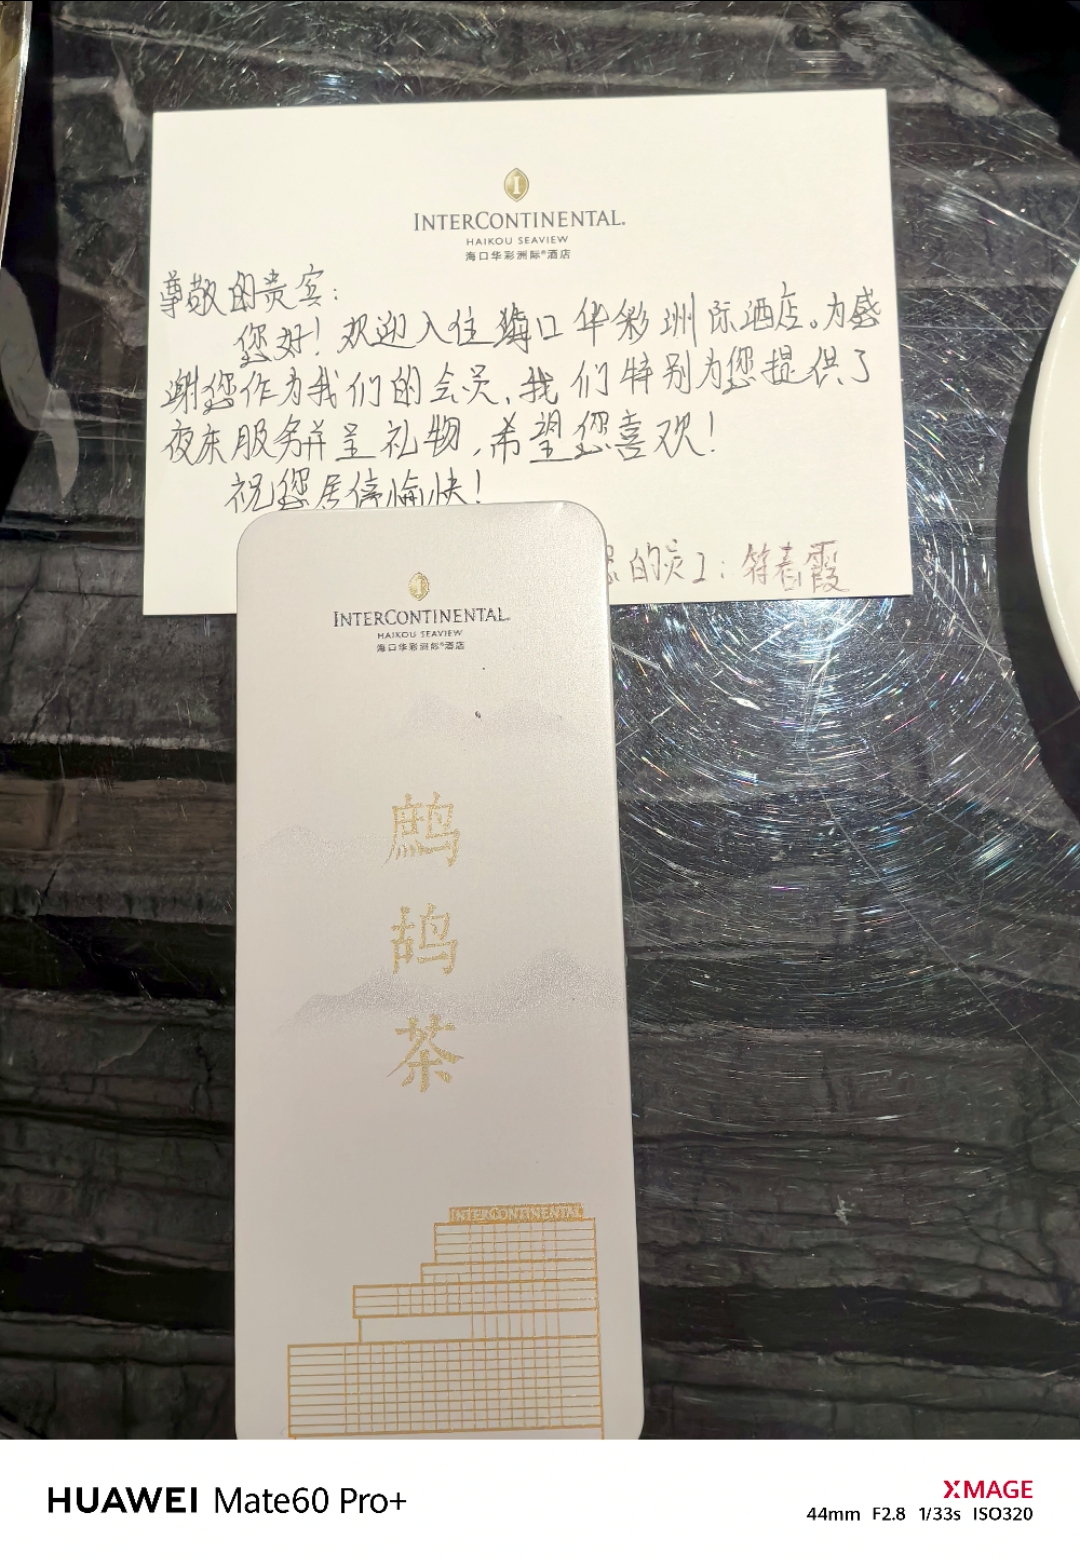 INTERCONTINENTAL.
HAIKOU SEAVIEW
海口华彩洲际®酒店
尊敬的贵宾:
您好!欢迎入住海口华彩洲际酒店。为感
谢您作为我们的会员,我们特别为您提供了
夜床服务并呈礼物,希望您喜欢!
祝您居停愉快!
的员工:符春霞
INTERCONTINENTAL.
HAIKOU SEAVIEW
海口华彩洲际®酒店
鹧
鸪
茶
INTERCONTINENTAL
HUAWEI Mate60 Pro+
XMAGE
44mm F2.8 1/33s ISO320